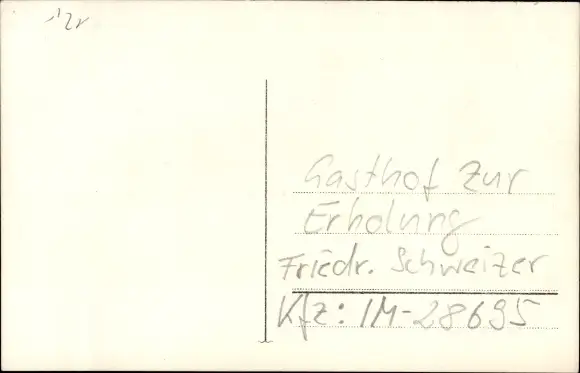 Gasthof zur
Erholung
Friedr. Schweizer
Kfz: IM-28695